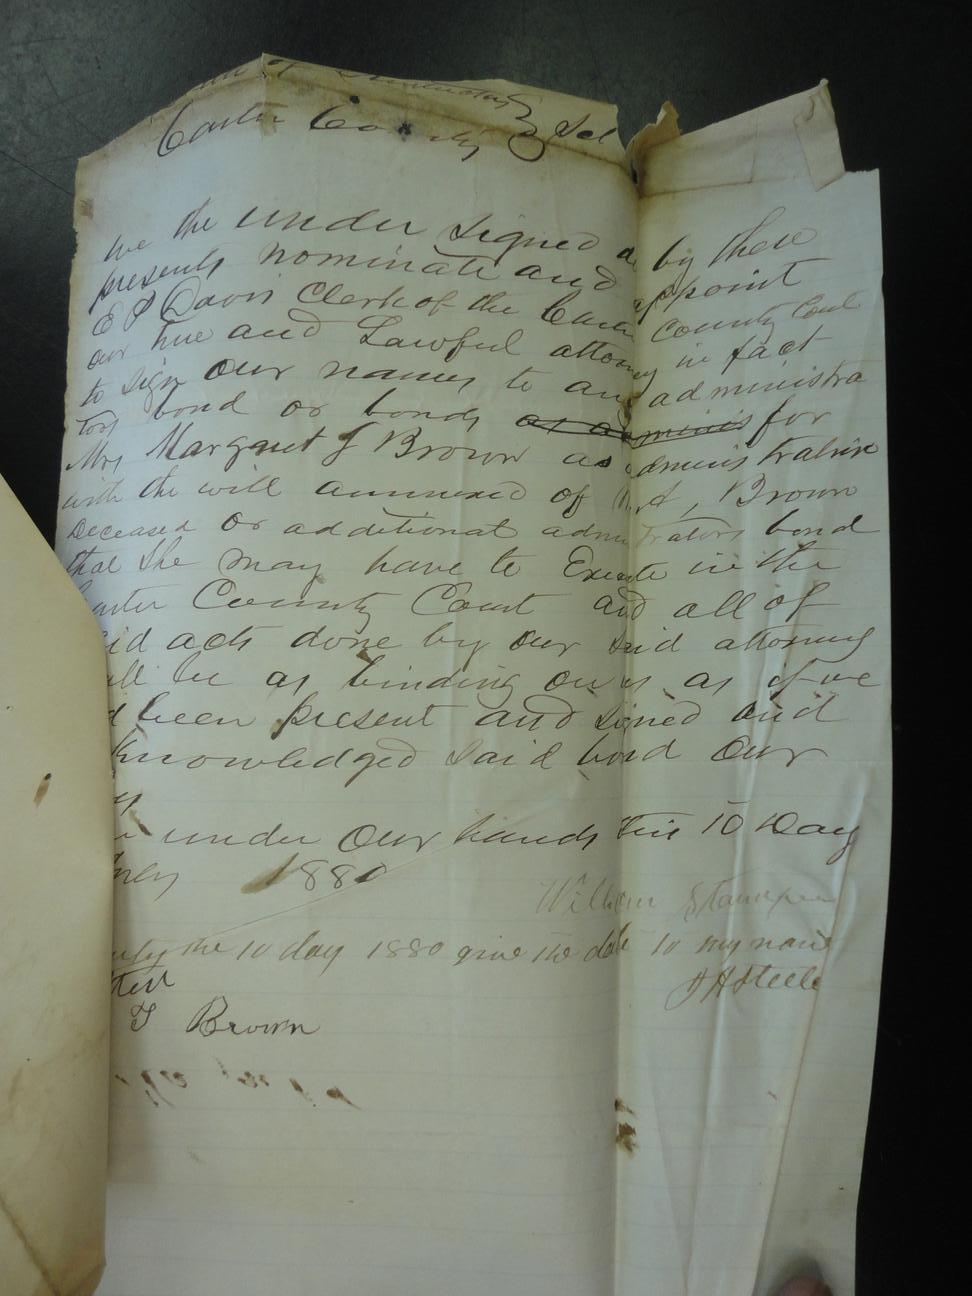 of Kentucky
Carter County } Sct
We the under signed do by these
presents nominate and appoint
E P Davis Clerk of the Carter County Court
our true and Lawful attorney in fact
to sign our names to any administra
tors bond or bonds as adminis for
Mrs Margaret J Brown as administratrix
with the will annexed of A, Brown
Deceased or additional administrators bond
that she may have to Execute in the
Carter County Court and all of
said acts done by our said attorney
shall be as binding on us as if we
had been present and signed and
acknowledged said bond our
under our hands this 10 Day
1880
William Stamper
the 10 day 1880 give the date to my name
J H Steele
Attest
J Brown